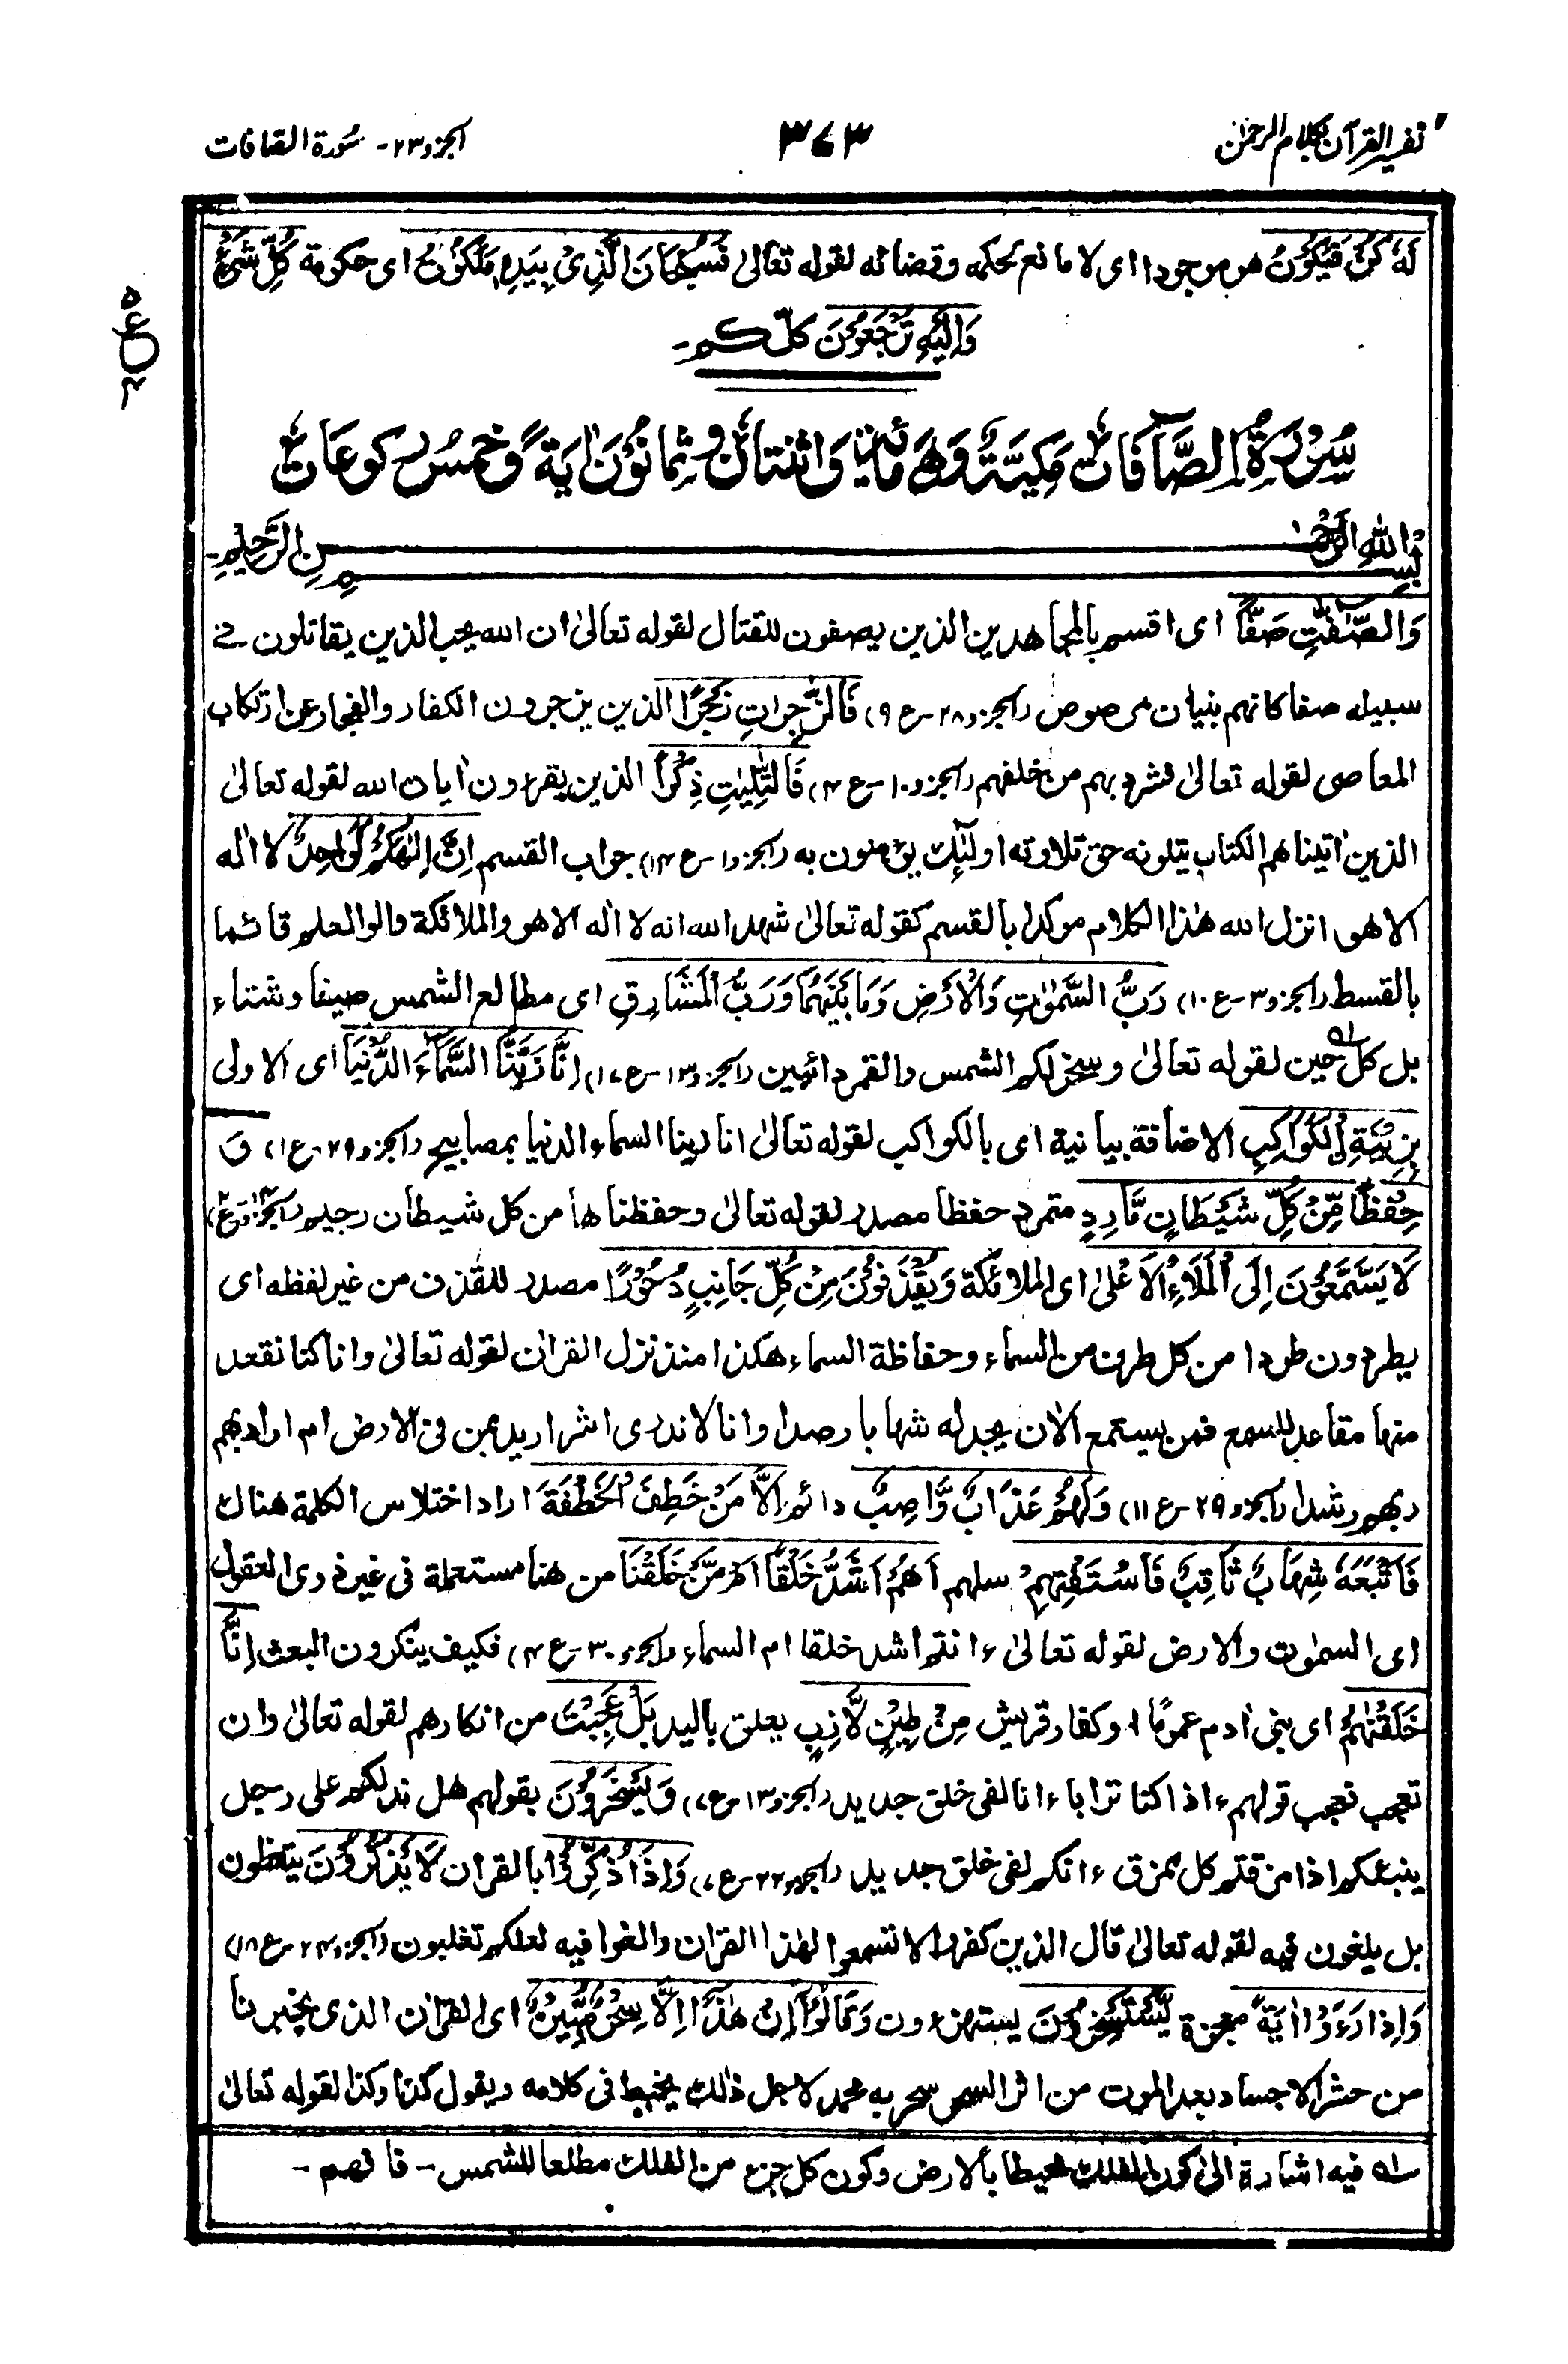 تفسير القرآن بكلام الرحمٰن
٣٧٣
الجزو٢٣- سُورة الصّافات
لَهٗ كُنْ فَيَكُوْنُ هو موجودا اى لا مانع لحكمه وقضائه لقوله تعالىٰ فَسُبْحَانَ الَّذِىْ بِيَدِهٖ مَلَكُوْتُ اى حكومة كُلِّ شَىْءٍ
وَاِلَيْهِ تُرْجَعُوْنَ كلّكم-
سُوْرَةُ الصَّآفَات مَكِيَّةٌ وَهِىَ مائة وَاثنتان وثمانُوْنَ اٰيَةً وخمسُ ركوعَات
بِسْمِ اللهِ الرَّحْمٰنِ الرَّحِيْمِ-
وَالصّٰٓفّٰتِ صَفًّا اى اقسم بالمجاهدين الذين يصفون للقتال لقوله تعالىٰ ان الله يحب الذين يقاتلون فى
سبيله صفا كانهم بنيان مرصوص (الجزو٢٨-ع٩) فَالزّٰجِرٰتِ زَجْرًا الذين يزجرون الكفار والفجار عن ارتكاب
المعاصى لقوله تعالىٰ فشرد بهم من خلفهم (الجزو١٠-ع٣) فَالتّٰلِيٰتِ ذِكْرًا الذين يقرءون اٰيات الله لقوله تعالىٰ
الذين اٰتيناهم الكتاب يتلونه حق تلاوته اولٰٓئك يؤمنون به (الجزو١-ع١٤) جواب القسم اِنَّ اِلٰهَكُمْ لَوَاحِدٌ لا اله
الا هو انزل الله هٰذا الكلام موكدا بالقسم كقوله تعالىٰ شهد الله انه لا اله الا هو والملائكة والوا العلم قائما
بالقسط (الجزو٣-ع١٠) رَبُّ السَّمٰوٰتِ وَالْاَرْضِ وَمَا بَيْنَهُمَا وَرَبُّ الْمَشَارِقِ اى مطالع الشمس صيفا وشتاء
بل كل ٥١ حين لقوله تعالىٰ وسخر لكم الشمس والقمر دائبين (الجزو١٣-ع١٧) اِنَّا زَيَّنَّا السَّمَآءَ الدُّنْيَا اى الاولى
بِزِيْنَةِ ِالْكَوَاكِبِ الاضافة بيانية اى بالكواكب لقوله تعالىٰ انا زينا السماء الدنيا بمصابيح (الجزو٢٩-ع١) وَ
حِفْظًا مِّنْ كُلِّ شَيْطَانٍ مَّارِدٍ متمرد حفظا مصدر لقوله تعالىٰ وحفظناها من كل شيطان رجيم
لَا يَسَّمَّعُوْنَ اِلَى الْمَلَاءِ الْاَعْلىٰ اى الملائكة وَيُقْذَفُوْنَ مِنْ كُلِّ جَانِبٍ دُحُوْرًا مصدر للقذف من غير لفظه اى
يطردون طردا من كل طرف من السماء وحفاظة السماء هكذا منذ نزل القراٰن لقوله تعالىٰ وانا كنا نقعد
منها مقاعد للسمع فمن يستمع الاٰن يجد له شهابا رصدا وانا لا ندرى اشر اريد بمن فى الارض ام اراد بهم
ربهم رشدا (الجزو٢٩-ع١١) وَلَهُمْ عَذَابٌ وَّاصِبٌ دائم اِلَّا مَنْ خَطِفَ الْخَطْفَةَ اراد اختلاس الكلمة هناك
فَاَتْبَعَهٗ شِهَابٌ ثَاقِبٌ فَاسْتَفْتِهِمْ سلهم اَهُمْ اَشَدُّ خَلْقًا اَمْ مَّنْ خَلَقْنَا من هنا مستعملة فى غير ذوى العقول
اى السمٰوٰت والارض لقوله تعالىٰ ءانتم اشد خلقا ام السماء (الجزو٣٠-ع٣) فكيف ينكرون البعث اِنَّا
خَلَقْنٰهُمْ اى بنى اٰدم عمومًا او كفار قريش مِنْ طِيْنٍ لَّازِبٍ يعلق باليد بَلْ عَجِبْتَ من انكارهم لقوله تعالىٰ وان
تعجب فعجب قولهم ءاذا كنا ترابا ءانا لفى خلق جديد (الجزو١٣-ع٧) وَيَسْخَرُوْنَ بقولهم هل ندلكم على رجل
ينبئكم اذا مزقتم كل ممزق ءانكم لفى خلق جديد (الجزو٢٢-ع٧) وَاِذَا ذُكِّرُوْا بالقراٰن لَا يَذْكُرُوْنَ يتعظون
بل يلغون فيه لقوله تعالىٰ قال الذين كفروا لا تسمعوا لهٰذا القراٰن والغوا فيه لعلكم تغلبون (الجزو٢٤-ع١٨)
وَاِذَا رَءَوْا اٰيَةً معجزة يَّسْتَسْخِرُوْنَ يستهزءون وَقَالُوْٓا اِنْ هٰذَآ اِلَّا سِحْرٌ مُّبِيْنٌ اى القراٰن الذى يخبرنا
من حشر الاجساد بعد الموت من اثر السحر سحر به محمد لاجل ذٰلك يخبط فى كلامه ويقول كذا وكذا لقوله تعالىٰ
٥١ فيه اشارة الىٰ كون الفلك محيطا بالارض وكون كل جزء من الفلك مطلعا للشمس- فافهم-